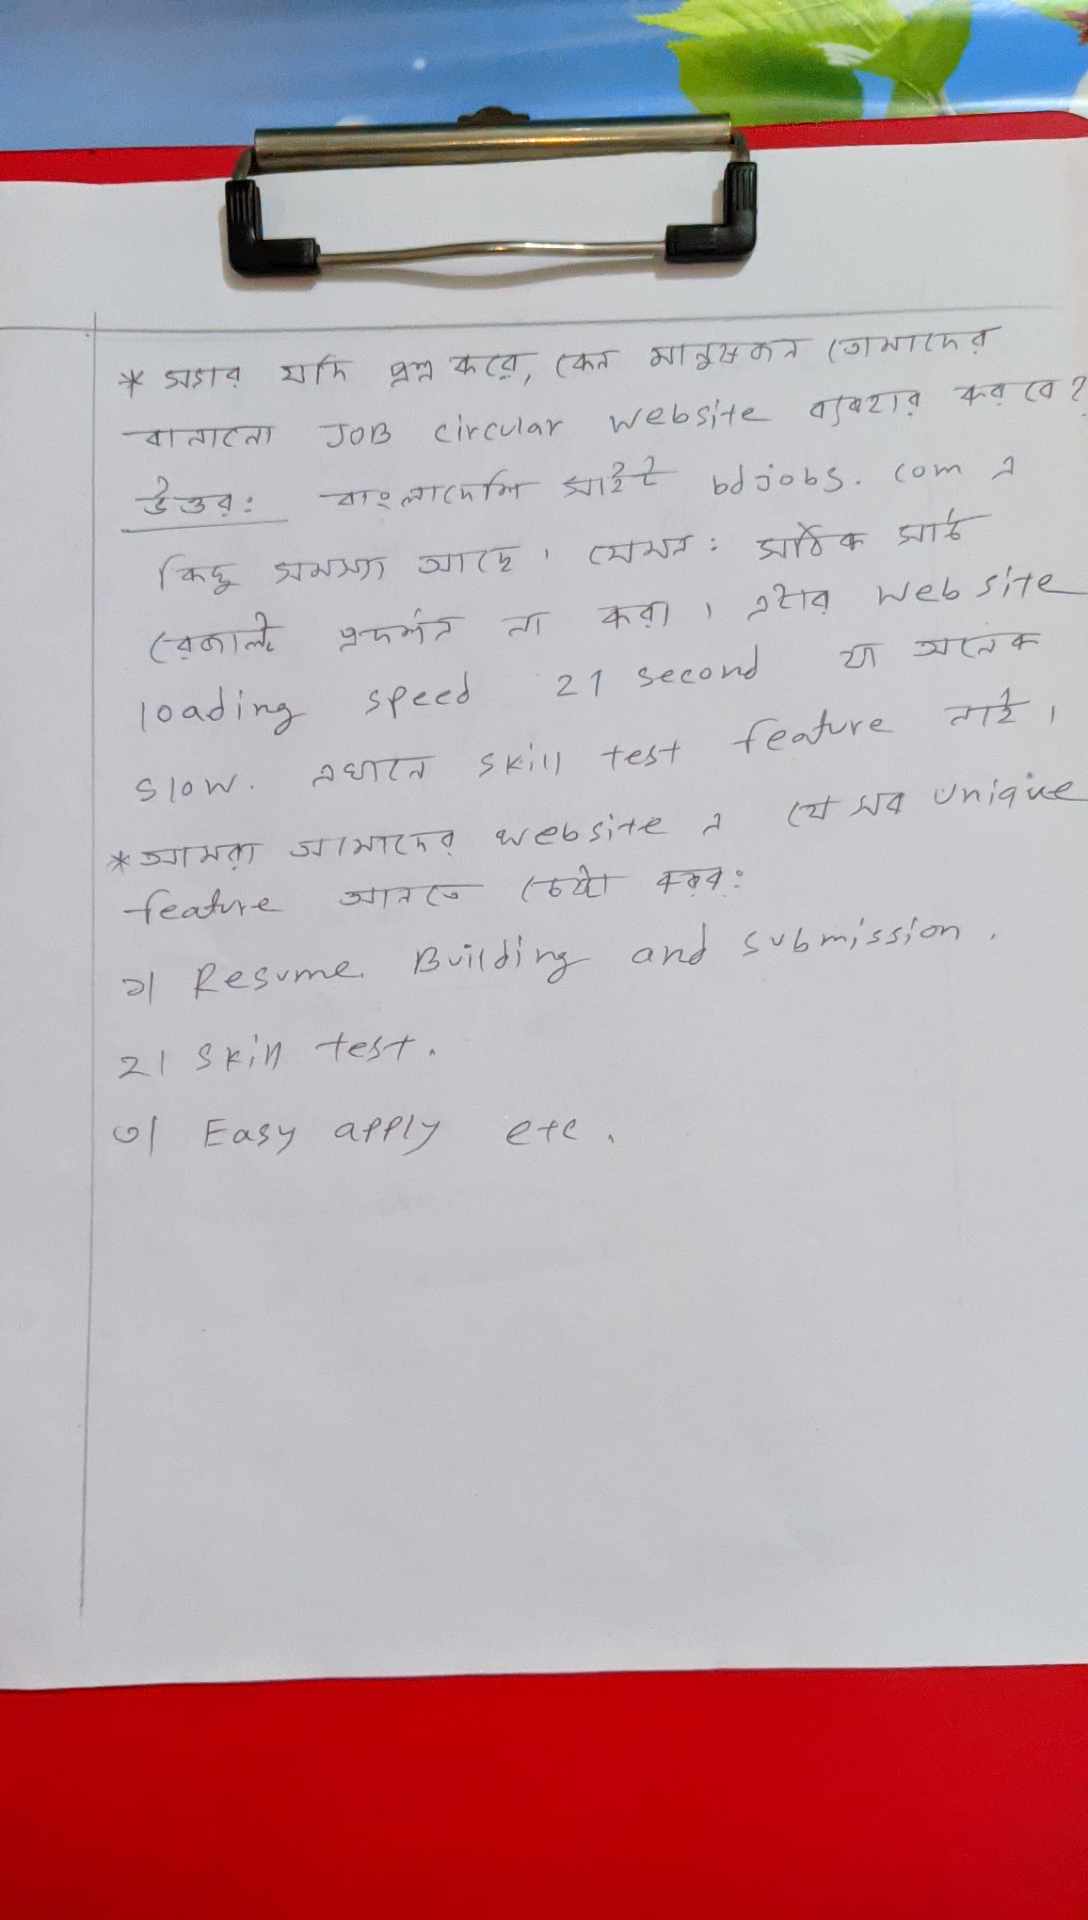 * স্যার যদি প্রশ্ন করে, কেন মানুষজন তোমাদের
বানানো JOB circular website ব্যবহার করবে?
উত্তর: বাংলাদেশি সাইট bdjobs. com এ
কিছু সমস্যা আছে। যেমন: সঠিক সার্চ
রেজাল্ট প্রদর্শন না করা। এটার web site
loading speed 21 second যা অনেক
slow. এখানে skill test feature নাই।
* আমরা আমাদের website এ যে সব unique
feature আনতে চেষ্টা করব:
১। Resume Building and submission.
২। Skill test.
৩। Easy apply etc.